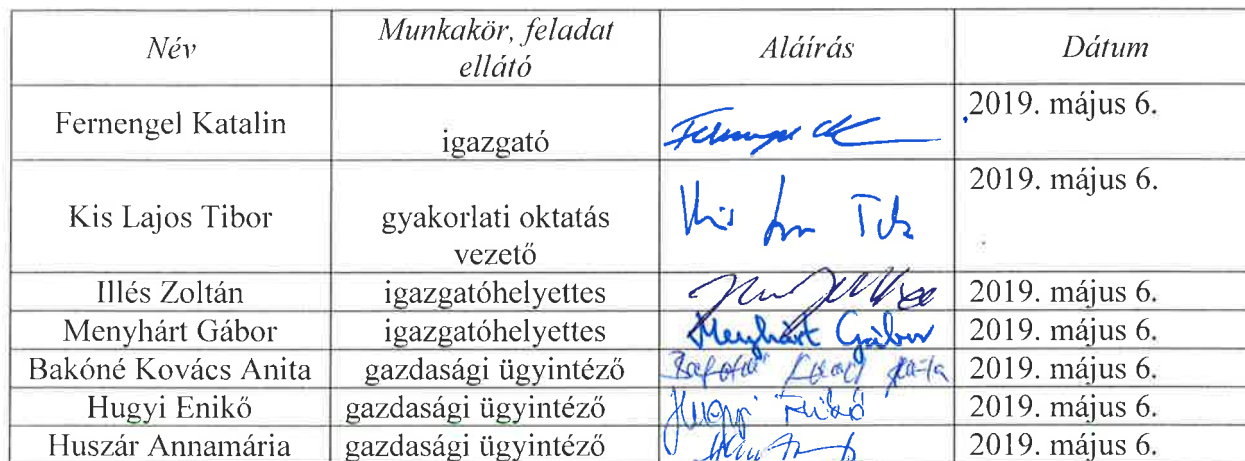 Név Munkakör, feladat ellátó Aláírás Dátum
Fernengel Katalin igazgató 2019. május 6.
Kis Lajos Tibor gyakorlati oktatás vezető Kis Tib 2019. május 6.
Illés Zoltán igazgatóhelyettes 2019. május 6.
Menyhárt Gábor igazgatóhelyettes Menyhárt Gábor 2019. május 6.
Bakóné Kovács Anita gazdasági ügyintéző 2019. május 6.
Hugyi Enikő gazdasági ügyintéző Hugyi Enikő 2019. május 6.
Huszár Annamária gazdasági ügyintéző 2019. május 6.